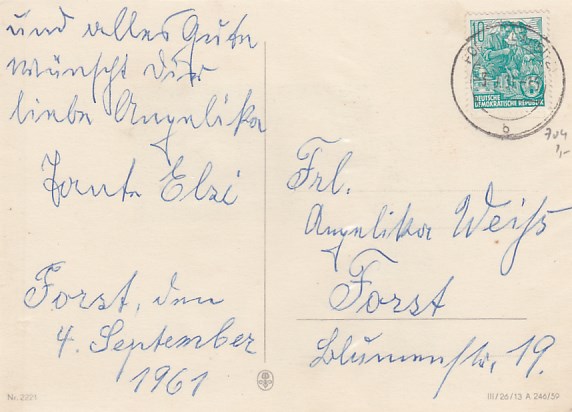 und alles Gute
wünscht dir
liebe Angelika
Tante Elzi
Forst, den
4. September
1961
Nr. 2221
10
DEUTSCHE
DEMOKRATISCHE REPUBLIK
b
704
1,-
Frl.
Angelika Weiß
Forst
Blumenstr. 19.
III/26/13 A 246/59